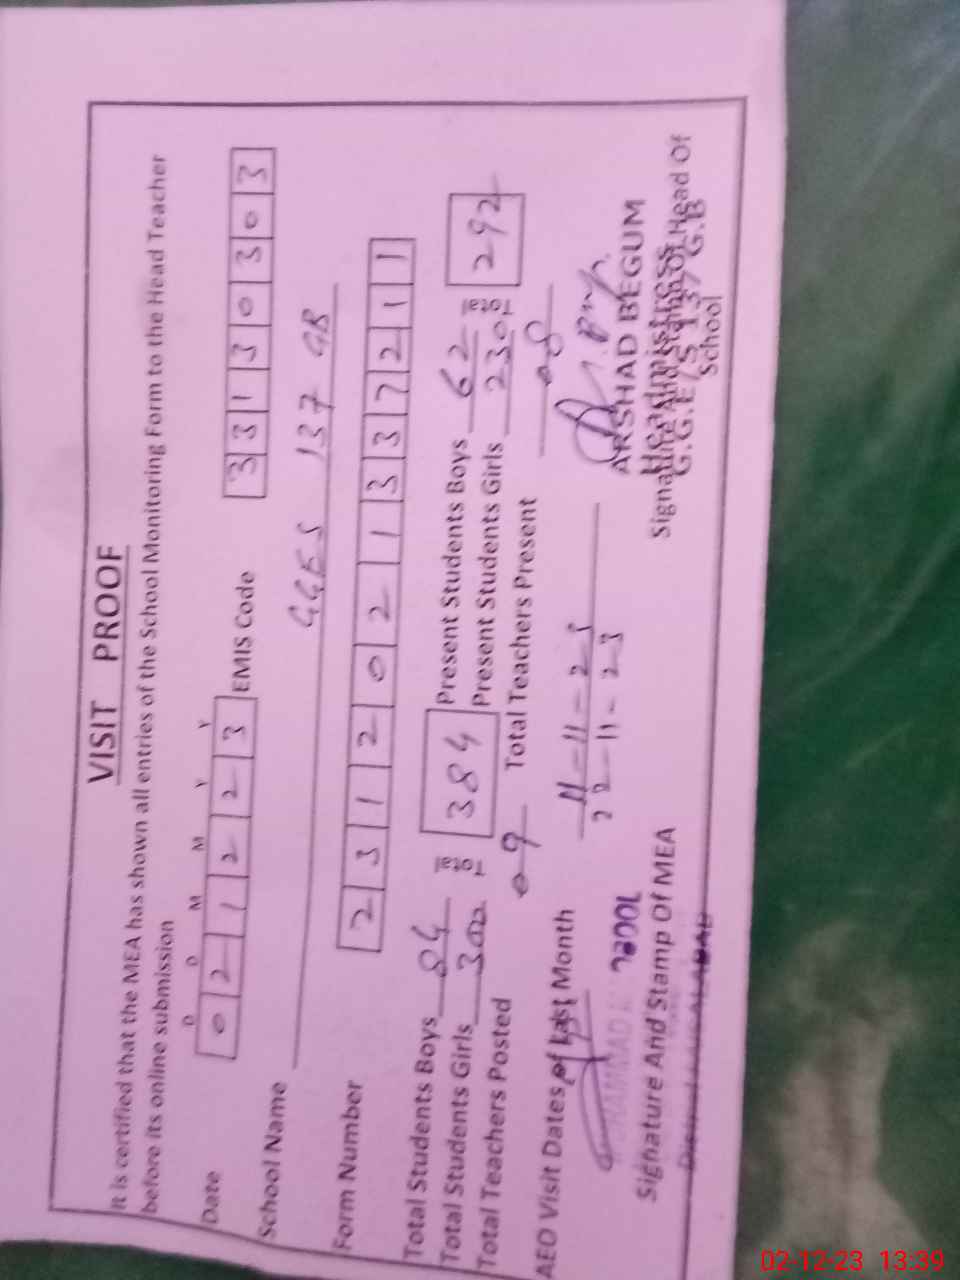 VISIT PROOF
It is certified that the MEA has shown all entries of the School Monitoring Form to the Head Teacher
before its online submission
D D M M Y Y
Date 0 2 1 2 2 3 EMIS Code 3 3 1 3 0 3 0 3
School Name GGES 137 GB
Form Number 2 3 1 2 0 2 1 3 3 7 2 1 1
Total Students Boys 84 Total 384 Present Students Boys 62 Total 292
Total Students Girls 300 Present Students Girls 230
Total Teachers Posted 09 Total Teachers Present 08
AEO Visit Dates of Last Month 11-11-23
22-11-23
ARSHAD BEGUM
Headmistress
G.G.E/S 137 G.B
Signature And Stamp Of MEA Signature And Stamp Of Head Of
School
02-12-23 13:39